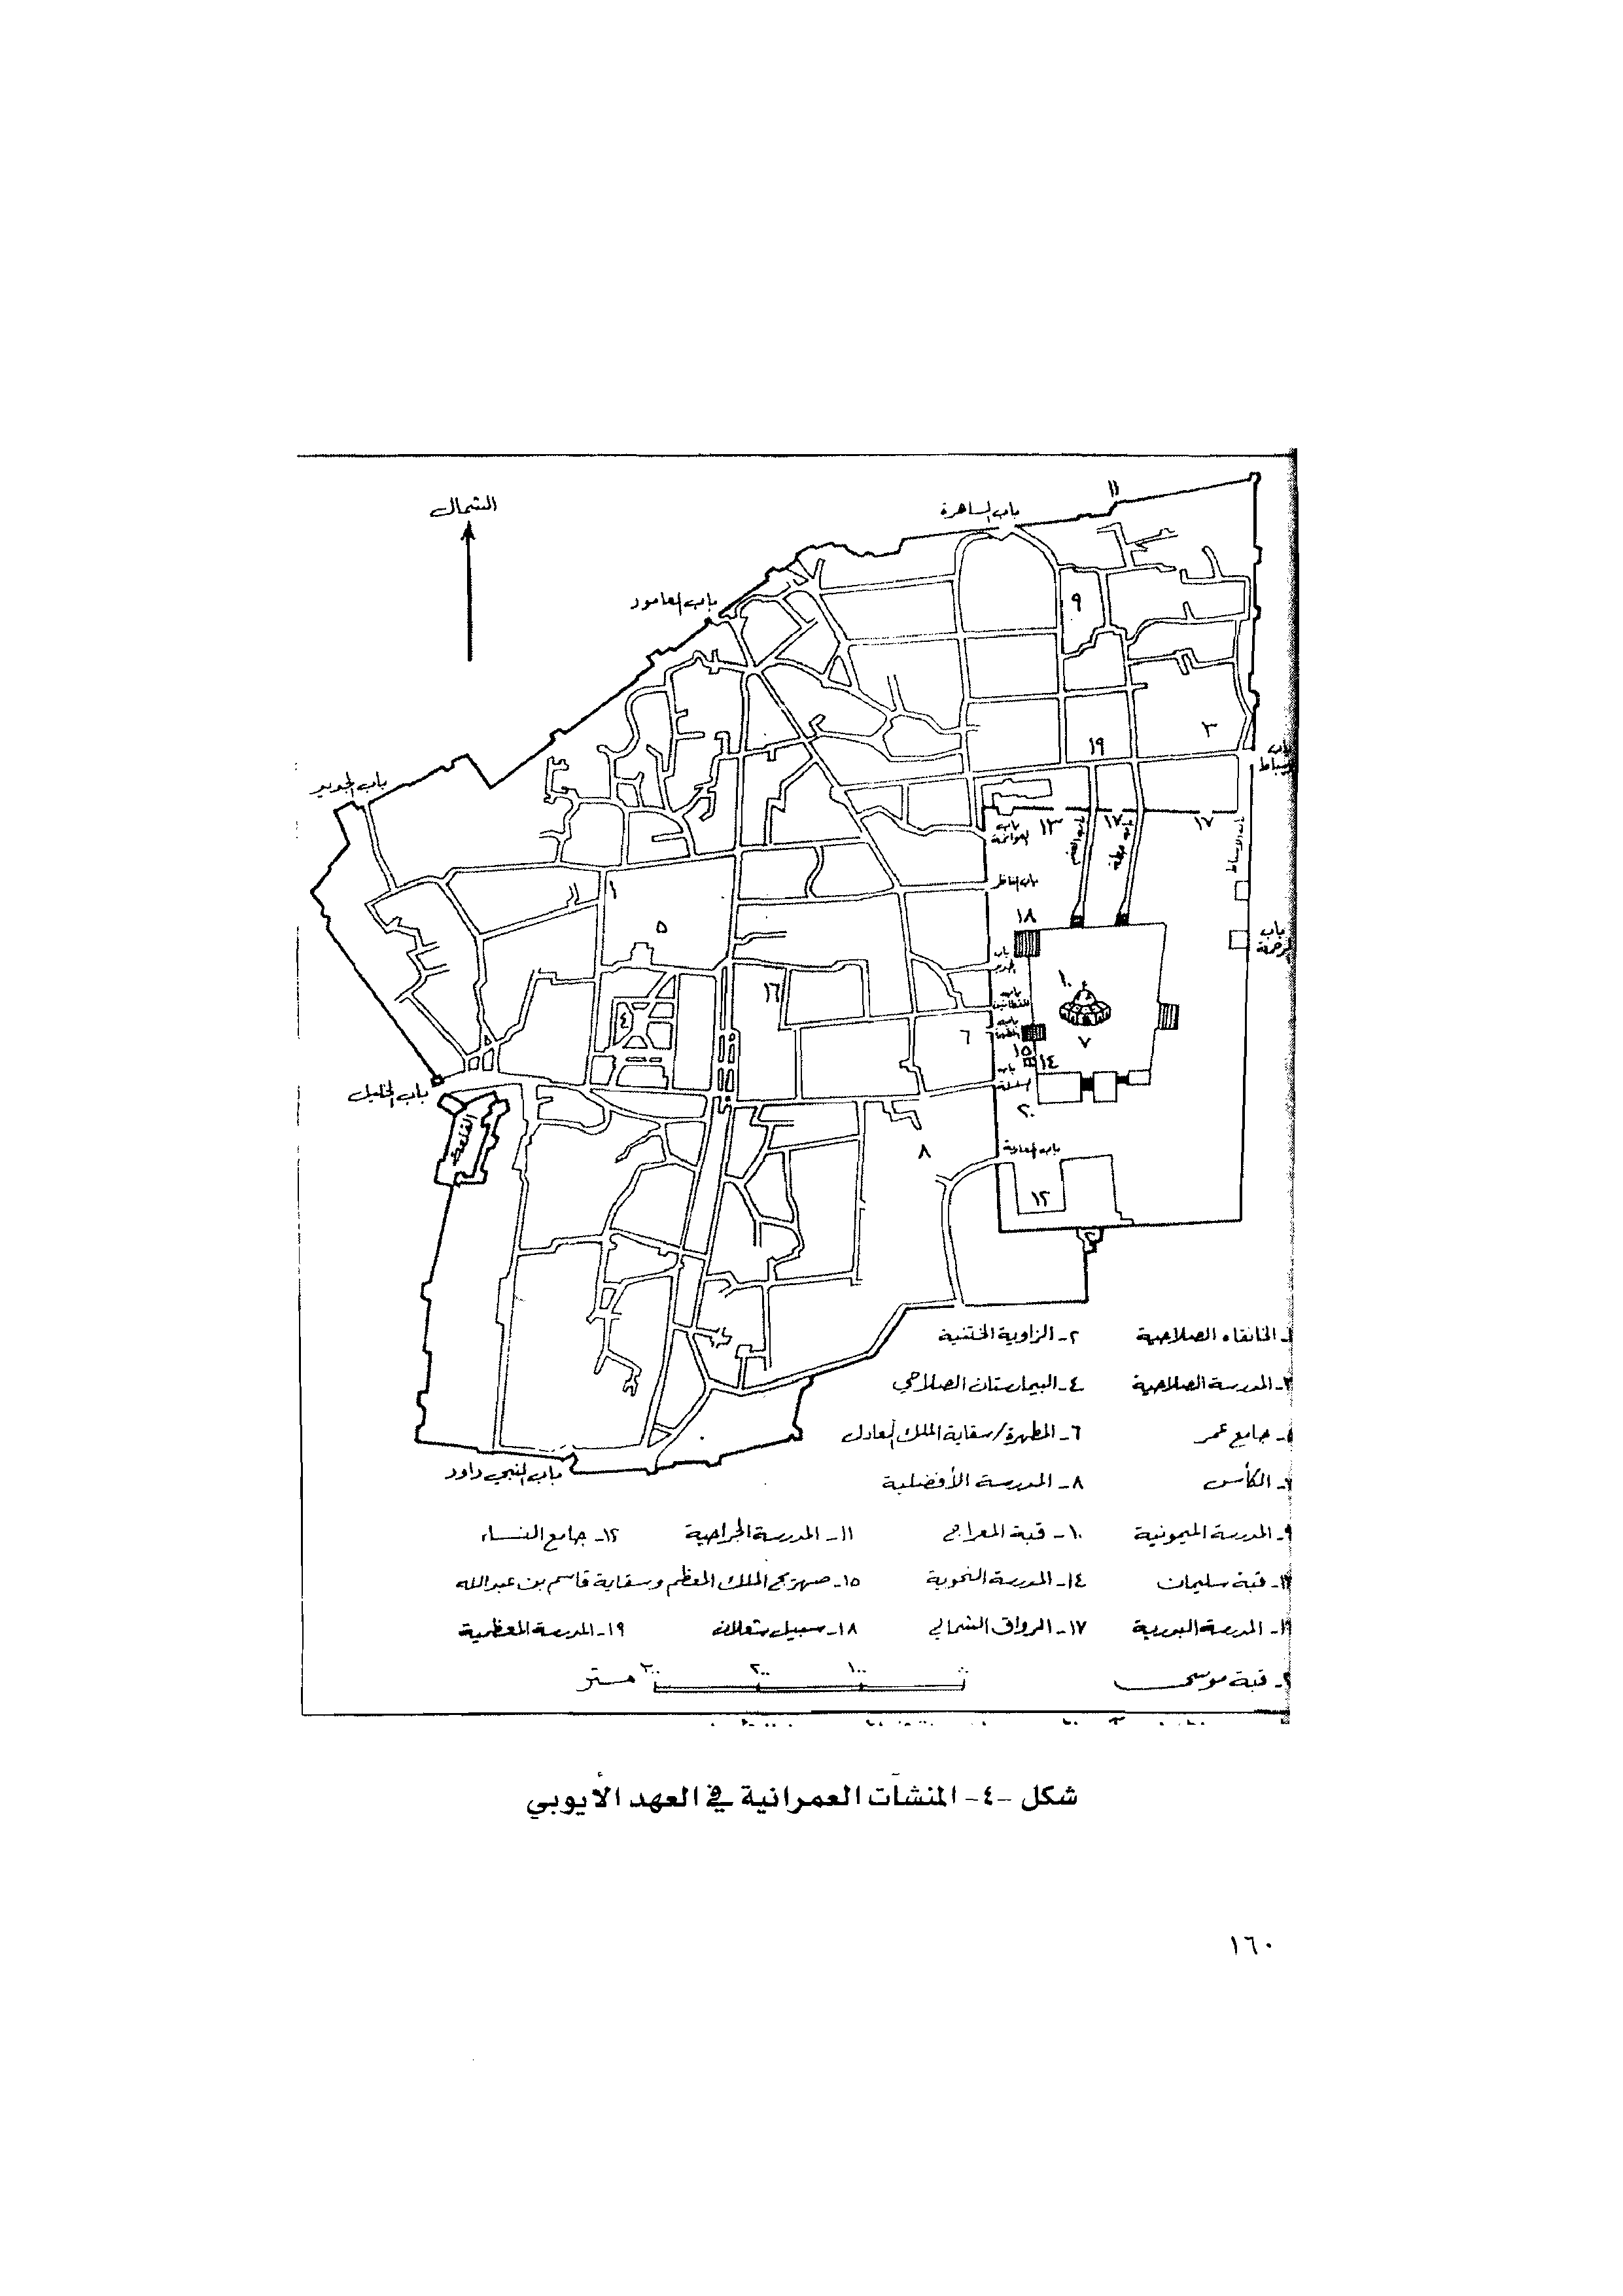 الشمال
باب الساهرة
١١
باب العامود
٩
٣
١٩
باب الجديد
باب
باب
١٣
١٧
١٧
باب الأسباط
باب حطة
باب الناظر
١
٥
١٨
باب
باب
١٠
١٦
باب
٤
٦
٧
١٥
١٤
باب
السلسلة
باب الخليل
القلعة
٢٠
٨
باب المغاربة
١٢
٢
باب النبي داود
الخانقاه الصلاحية ٢- الزاوية الختنية
٣- المدرسة الصلاحية ٤- البيمارستان الصلاحي
٥- جامع عمر ٦- المطهرة/سقاية الملك العادل
٧- الكأس ٨- المدرسة الأفضلية
٩- المدرسة الميمونية ١٠- قبة المعراج ١١- المدرسة الجراحية ١٢- جامع النساء
١٣- قبة سليمان ١٤- المدرسة النحوية ١٥- صهريج الملك المعظم وسقاية قاسم بن عبدالله
المدرسة البدرية ١٧- الرواق الشمالي ١٨- سبيل شعلان ١٩- المدرسة المعظمية
قبة موسى
٣٠٠ ٢٠٠ ١٠٠ متر
شكل -٤- المنشآت العمرانية في العهد الأيوبي
١٦٠